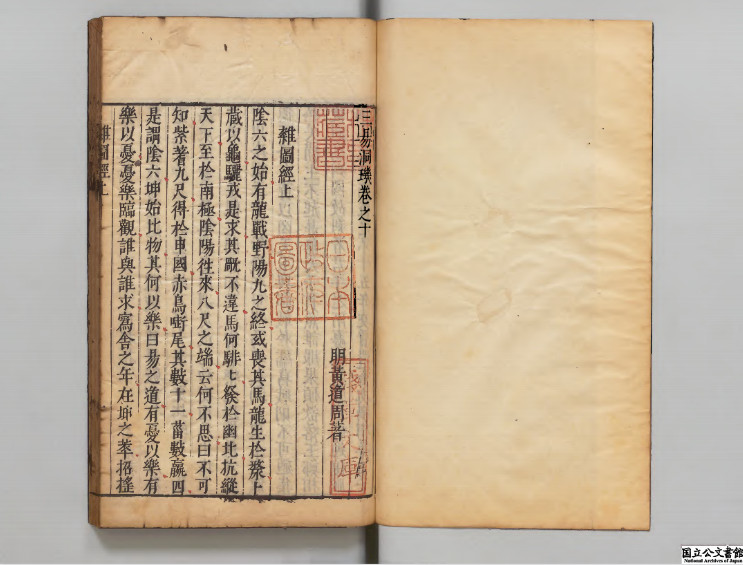 三易洞璣卷之十
明黃道周著
雜圖經上
陰六之始有龍戰野陽九之終或喪其馬龍生於桼上
歲以龜驪戎是求其
不違馬何騑
於幽北抗縱
天下至於南極陰陽徃來八尺之端云何不思曰不可
知紫著九尺得於申國赤鳥
尾其數十一
數贏四
是謂陰六坤始比物其何以樂曰易之道有憂以樂有
樂以憂憂樂臨觀誰與誰求寫舍之年在坤之萃招搖
雜圖經上
国立公文書館
National Archives of Japan